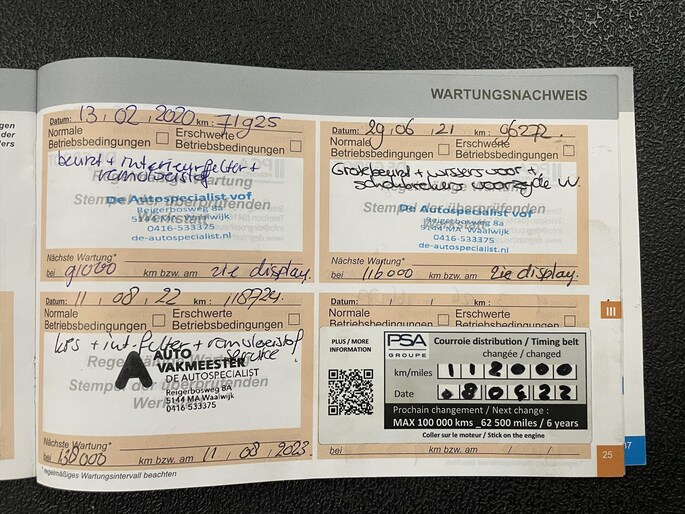 WARTUNGSNACHWEIS
Datum: 13, 02, 2020 km: 71925
Normale Betriebsbedingungen
Erschwerte Betriebsbedingungen
beurt + interieurfilter +
remvloeistof
De Autospecialist vof
Reigerbosweg 8a
5144 MA Waalwijk
0416-533375
de-autospecialist.nl
Nächste Wartung*
bei 91000 km bzw. am zie display.
Datum: 29, 06, 21 km: 96272.
Normale Betriebsbedingungen
Erschwerte Betriebsbedingungen
Grote beurt + wissers voor +
voorzijde
Stempel der überprüfenden
De Autospecialist vof
Reigerbosweg 8a
5144 MA Waalwijk
0416-533375
de-autospecialist.nl
Nächste Wartung*
bei 116000 km bzw. am zie display.
Datum: 11, 08, 22 km: 118724.
Normale Betriebsbedingungen
Erschwerte Betriebsbedingungen
+ int.filter + remvloeistof
service
AUTO
VAKMEESTER
DE AUTOSPECIALIST
Reigerbosweg 8A
5144 MA Waalwijk
0416-533375
Nächste Wartung*
bei 138000 km bzw. am 11, 08, 2023
*regelmäßiges Wartungsintervall beachten
Datum: km:
Normale
Betriebsbedingungen
Erschwerte
Betriebsbedingungen
PLUS / MORE
INFORMATION
PSA
GROUPE
Courroie distribution / Timing belt
changée / changed
km/miles 112000
Date 080422
Prochain changement / Next change :
MAX 100 000 kms _62 500 miles / 6 years
Coller sur le moteur / Stick on the engine
bei km bzw. am
III
25